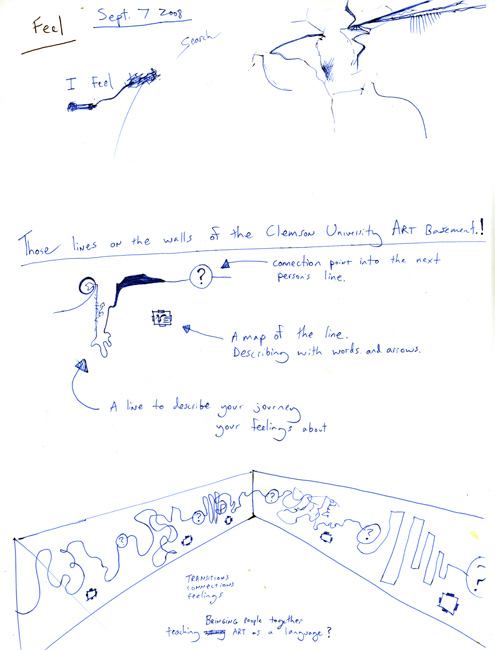 Feel
Sept. 7 2008
Search
I Feel
Those lines on the walls of the Clemson University ART Basement!
?
connection point into the next
person's line.
A map of the line.
Describing with words and arrows.
A line to describe your journey
your feelings about
?
?
?
?
?
?
TRANSITIONS
CONNECTIONS
feelings
BRINGING People together
teaching ART as a language?